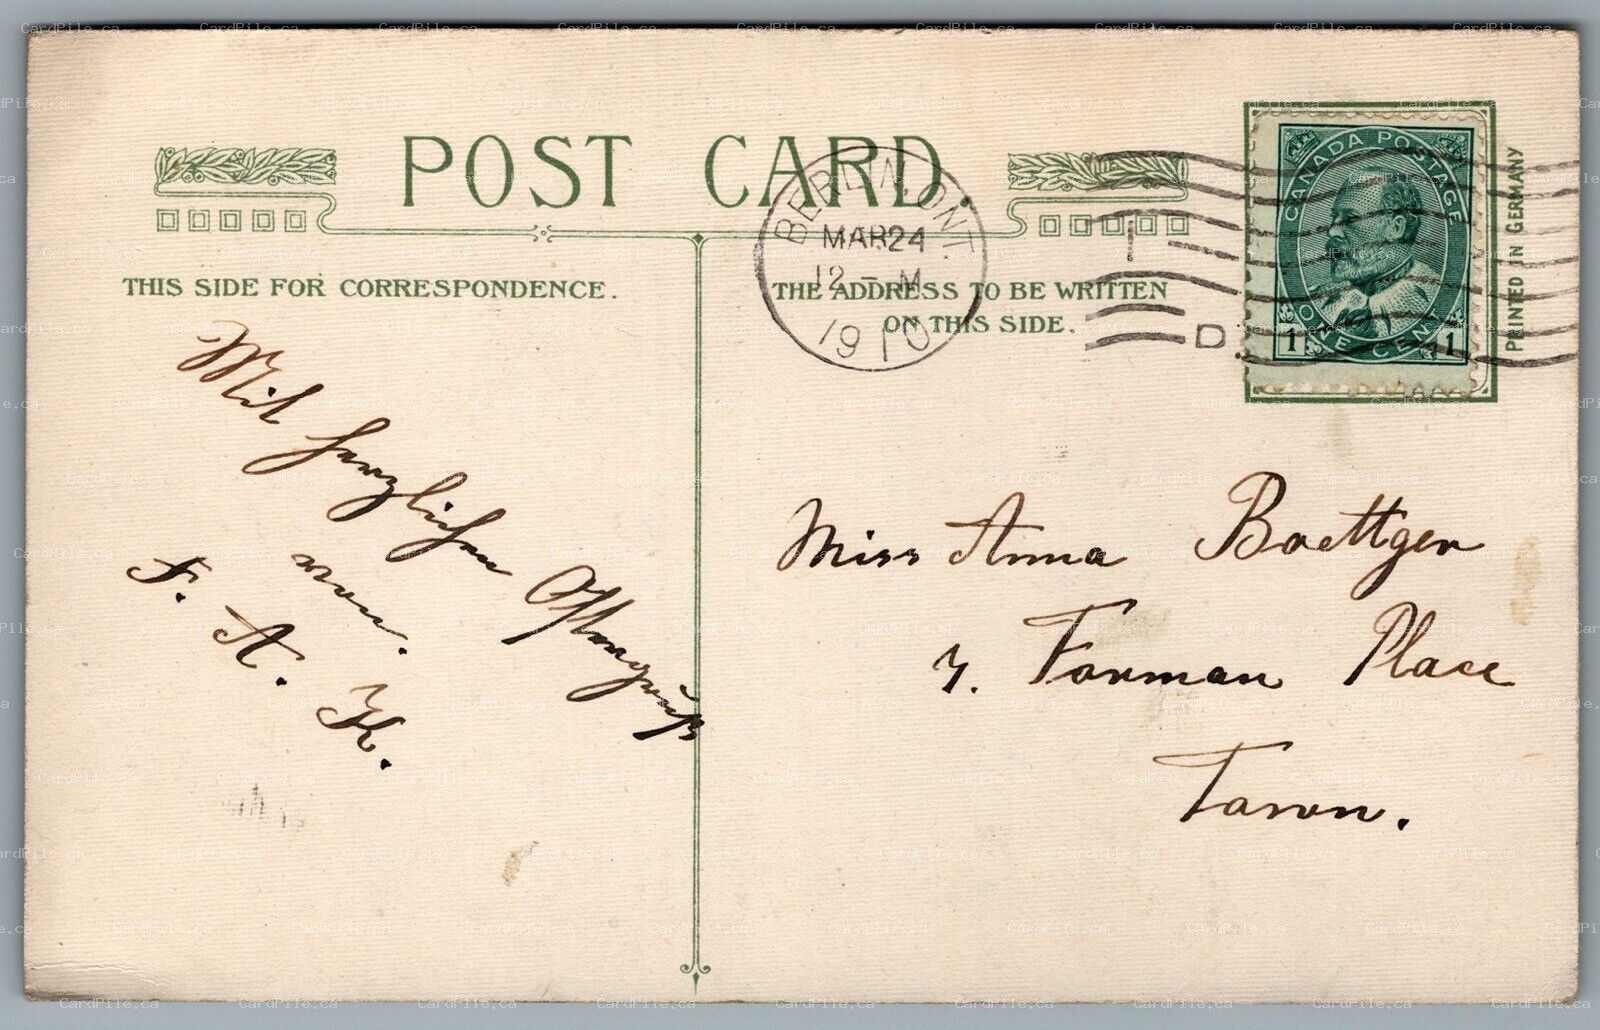 POST CARD.
THIS SIDE FOR CORRESPONDENCE.
THE ADDRESS TO BE WRITTEN
ON THIS SIDE.
BERLIN. ONT.
MAR 24
12 - M
1910
D
CANADA POSTAGE
ONE CENT
1 1
PRINTED IN GERMANY
Mit herzlichen Ostergruß
von.
F. A. K.
Miss Anna Boettger
7. Forman Place
Town.
CardPile.ca